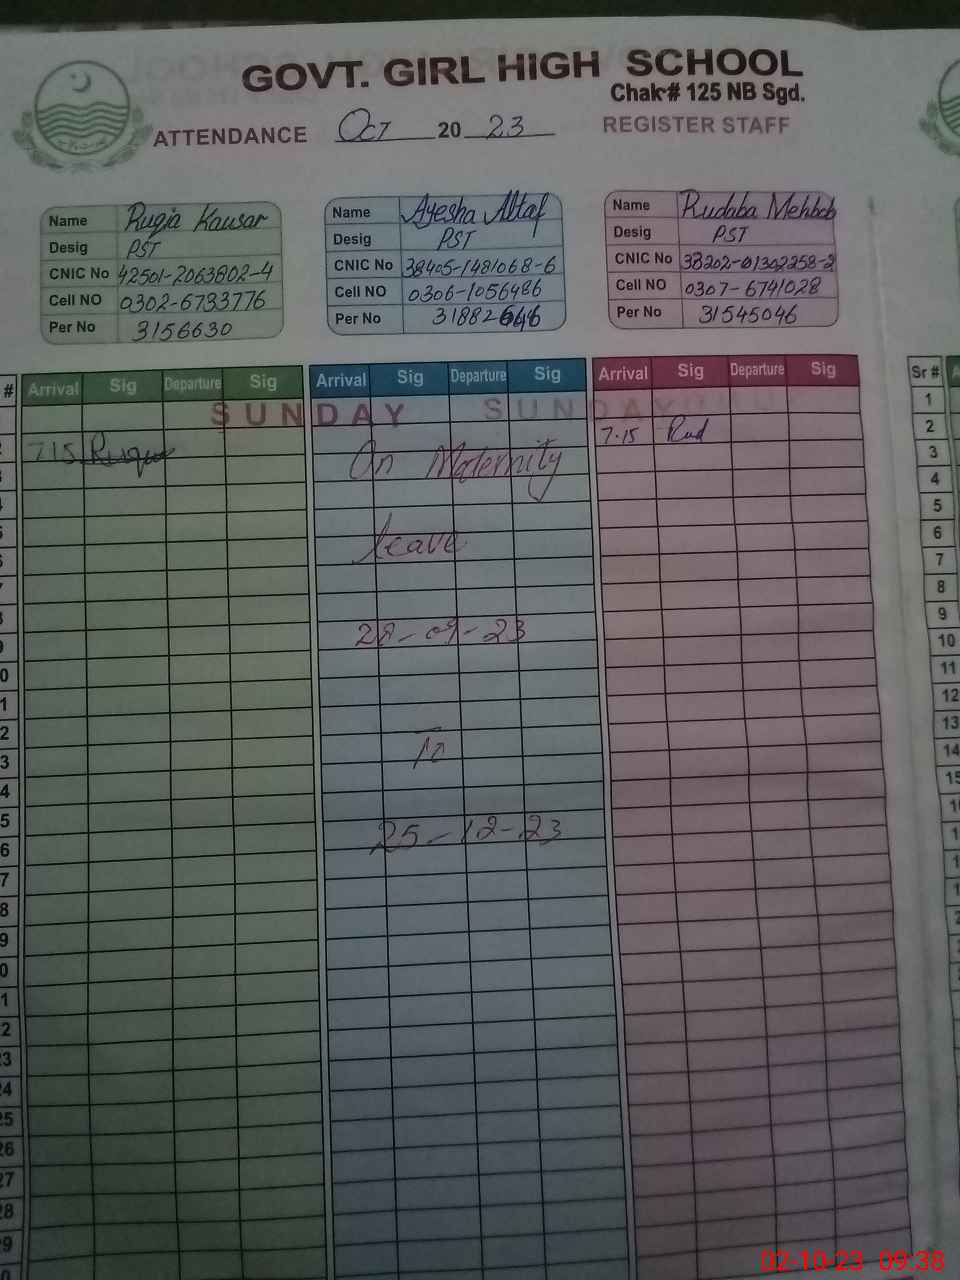 GOVT. GIRL HIGH SCHOOL
Chak# 125 NB Sgd.
ATTENDANCE Oct 20 23 REGISTER STAFF
Name Ruqia Kausar
Desig PST
CNIC No 42501-2063802-4
Cell NO 0302-6733776
Per No 3156630
Name Ayesha Altaf
Desig PST
CNIC No 38405-1481068-6
Cell NO 0306-1056486
Per No 31882646
Name Rudaba Mehbob
Desig PST
CNIC No 38202-01302258-2
Cell NO 0307-6741028
Per No 31545046
# Arrival Sig Departure Sig Arrival Sig Departure Sig Arrival Sig Departure Sig Sr #
SUNDAY SUNDAY 1
7.15 7.15 Rud 2
On Maternity 3
4
5
leave 6
7
8
28-09-23 9
10
11
12
To 13
14
15
25-12-23
02-10-23 09:38